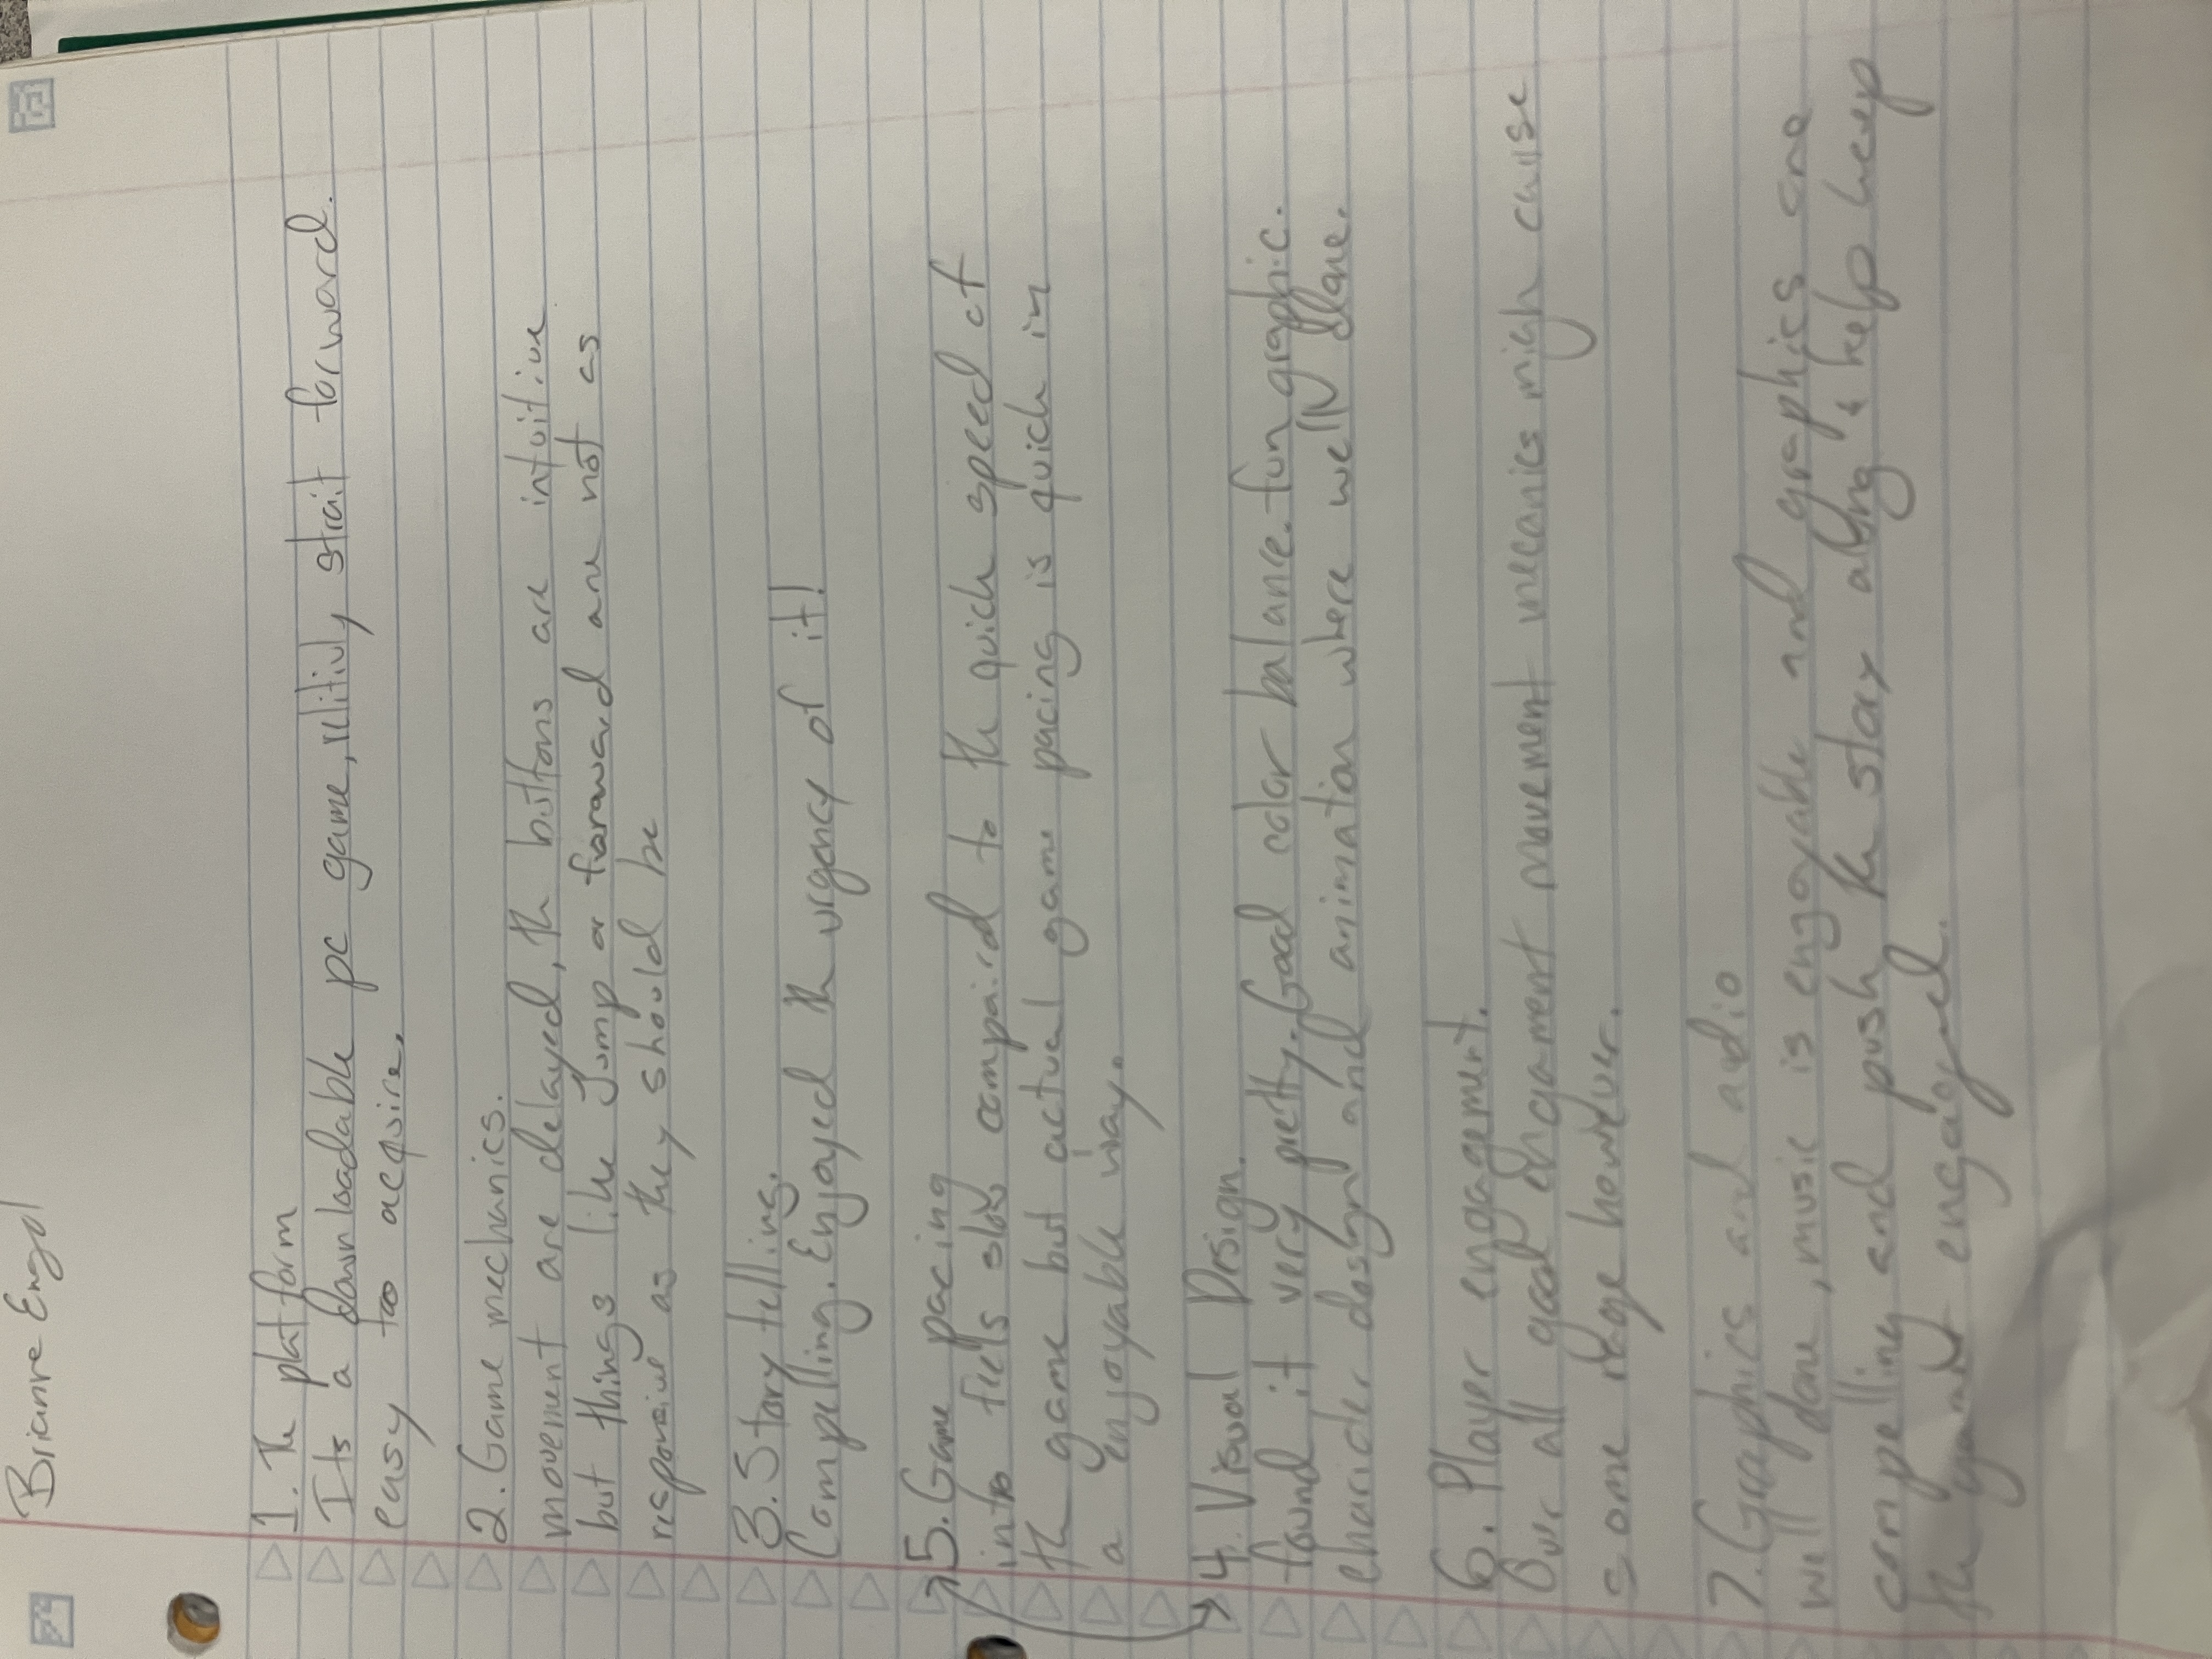 Brianne Engel
1. The platform
Its a downloadable pc game, relitivly strait forward.
easy too acquire.
2. Game mechanics.
movement are delayed, the buttons are intuitive
but things like Jump or foraward are not as
responsive as they should be
3. Story telling.
Compelling. Enjoyed the urgency of it!
5. Game pacing
intro feels slow compaired to the quick speed of
the game but actual game pacing is quick in
a enjoyable way.
4. Visual Design.
found it very pretty. Good color balance. fun graphic.
charicter design and animation where well done.
6. Player engagement.
Over all good engament movement mecanics migh cause
some rage however.
7. Graphics and audio
well done, music is engoyable and graphics are
compelling and push the story along & help keep
the engaged.